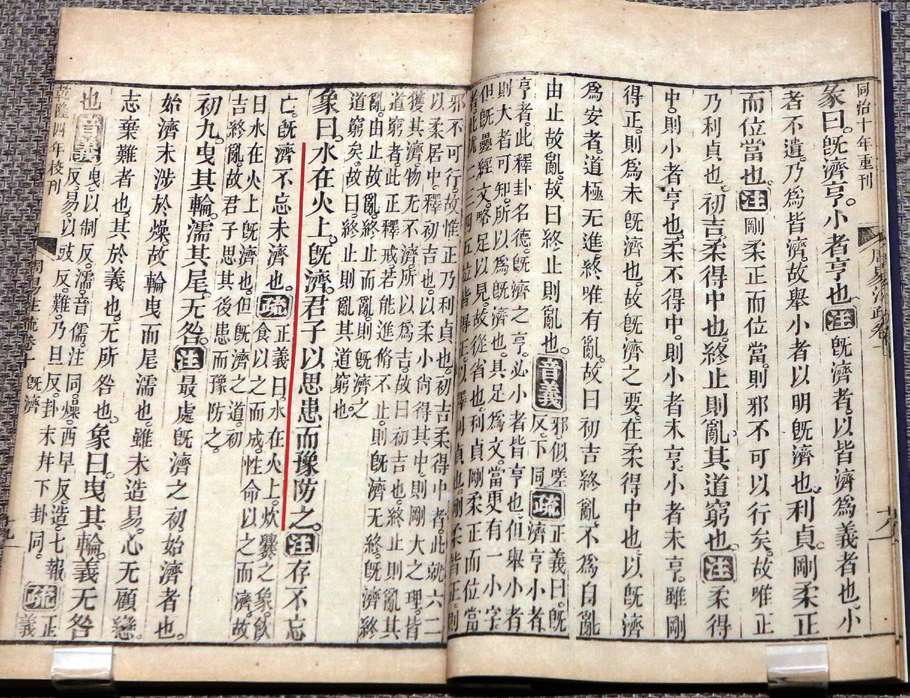 同治十年重刊
周易注疏卷
彖曰。旣濟亨。小者亨也。注旣濟者。以皆濟爲義者也。小
者不遺。乃爲皆濟。故舉小者以明旣濟也。利貞。剛柔正
而位當也。注剛柔正而位當。則邪不可以行矣。故唯正
乃利貞也。初吉。柔得中也。終止則亂。其道窮也。注柔得
中。則小者亨也。柔不得中。則小者未亨。小者未亨。雖剛
得正。則爲未旣濟也。故旣濟之要。在柔得中也。以旣濟
爲安者。道極无進。終唯有亂。故曰初吉終亂。不爲自亂。
由止故亂。故曰終止則亂也。音義邪似嗟反下同疏正義曰旣濟亨小者
亨者此釋卦名德旣濟之亨必小者皆亨也但舉小者
則大者可知所以爲旣濟也具足爲文當更有一小字
但旣疊經文略足以見故從省也利貞剛柔正而位當
者此就二三四五並皆得正以釋利貞也剛柔皆正則
邪不可行故惟正乃利貞也初吉柔得中者此就六二
以柔居中釋初吉也以柔小尚得其中則剛大之理皆
獲其濟物无不濟所以爲吉故曰初吉也終止則亂其
道窮者此正釋戒若能進脩不止則旣濟无終旣濟終
亂由止故亂終止而亂則旣濟之
道窮矣故曰終止則亂其道窮也
象曰。水在火上。旣濟。君子以思患而豫防之。注存不忘
亡。旣濟不忘未濟也。疏正義曰水在火上炊爨之象飲食以之而成性命以之而濟故
曰水在火上旣濟也但旣濟之道初
吉終亂故君子思其後患而豫防之
初九。曳其輪。濡其尾。无咎。注最處旣濟之初。始濟者也。
始濟未涉於燥。故輪曳而尾濡也。雖未造易。心无顧戀。
志棄難者也。其於義也。无所咎也。象曰。曳其輪。義无咎
也。音義曳以制反濡音儒注同燥西早反造七報反易以豉反難乃旦反卦末幷下卦同疏正義
乾隆四年校刊
周易注疏卷十
旣濟